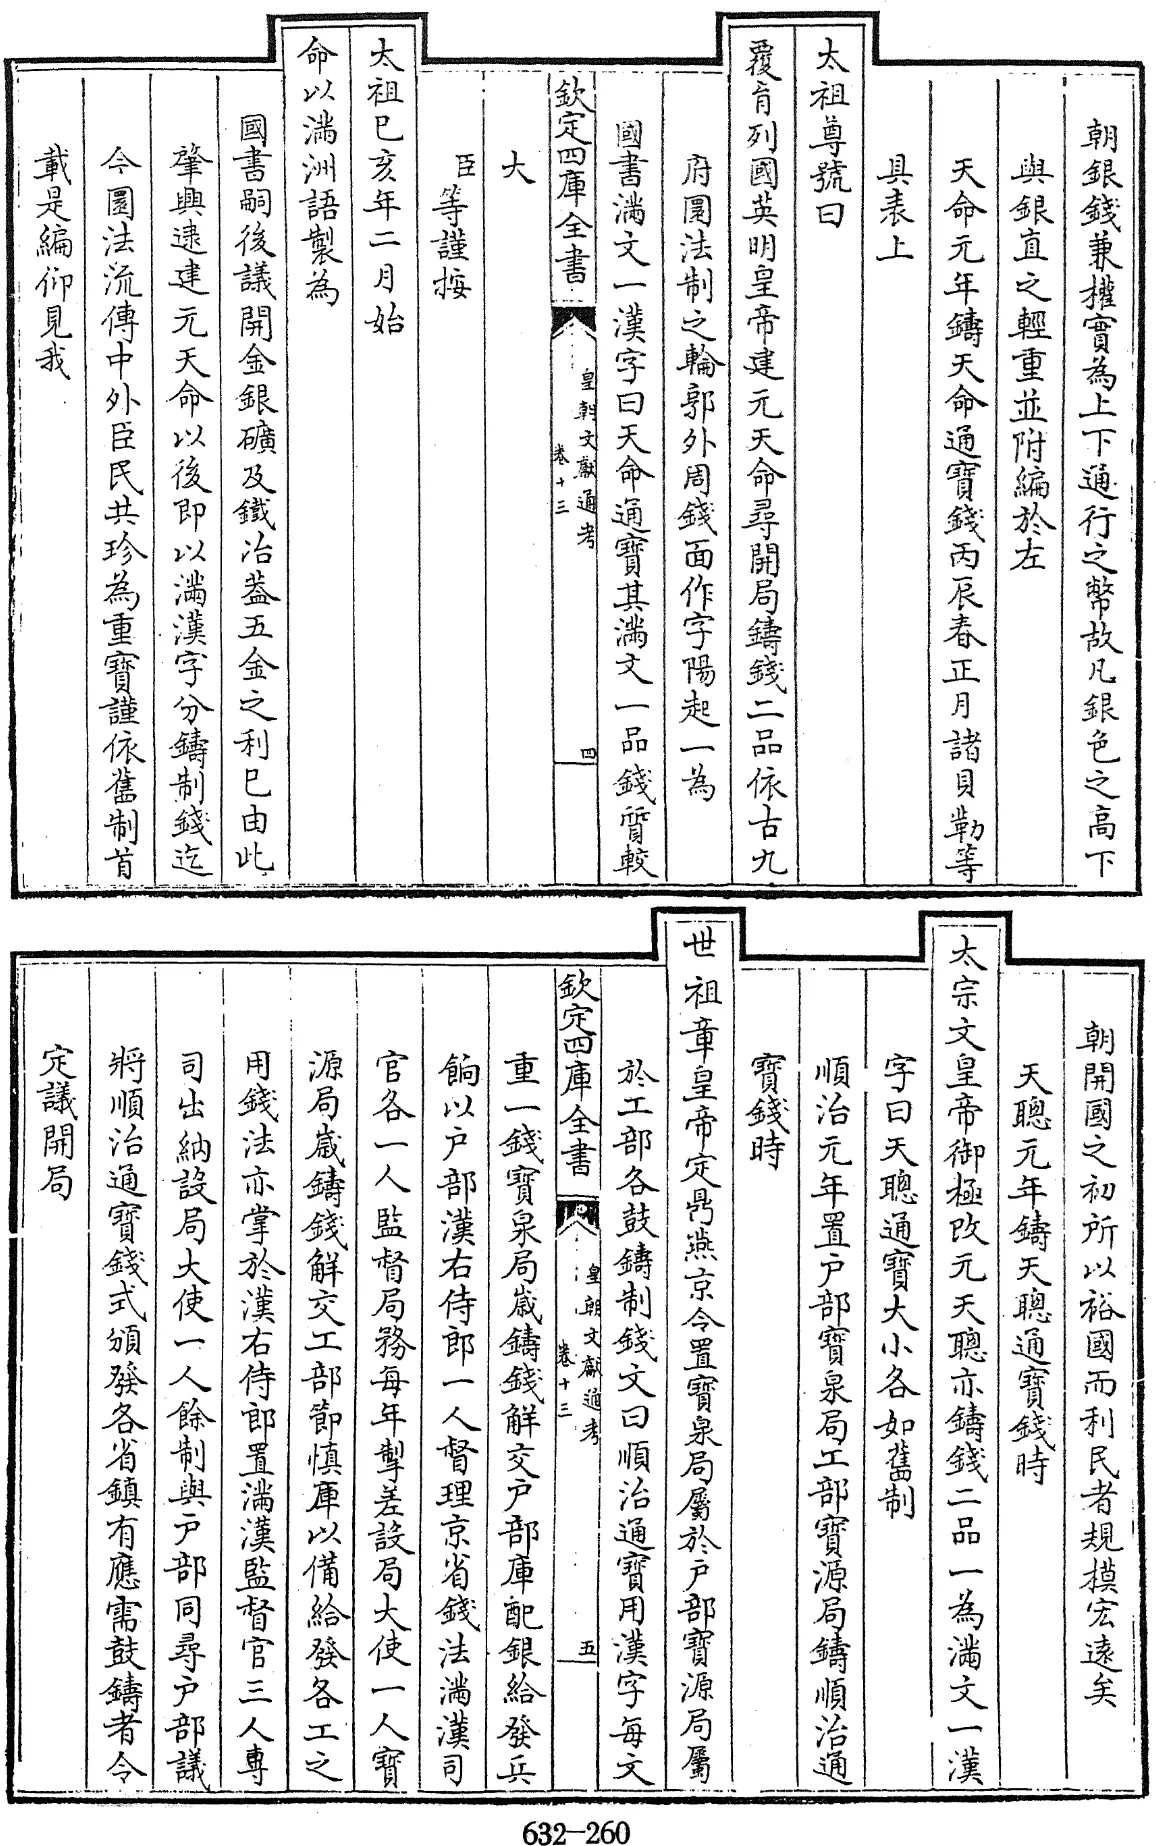 朝銀錢兼權實為上下通行之幣故凡銀色之高下
與銀直之輕重並附編於左
天命元年鑄天命通寶錢丙辰春正月諸貝勒等
具表上
太祖尊號曰
覆育列國英明皇帝建元天命尋開局鑄錢二品依古九
府圜法制之輪郭外周錢面作字陽起一為
國書滿文一漢字曰天命通寶其滿文一品錢質較
欽定四庫全書
皇朝文獻通考
卷十三
四
大
臣等謹按
太祖已亥年二月始
命以滿洲語製為
國書嗣後議開金銀礦及鐵冶蓋五金之利已由此
肇興逮建元天命以後即以滿漢字分鑄制錢迄
今圜法流傳中外臣民共珍為重寶謹依舊制首
載是編仰見我
朝開國之初所以裕國而利民者規模宏遠矣
天聰元年鑄天聰通寶錢時
太宗文皇帝御極改元天聰亦鑄錢二品一為滿文一漢
字曰天聰通寶大小各如舊制
順治元年置戶部寶泉局工部寶源局鑄順治通
寶錢時
世祖章皇帝定鼎燕京令置寶泉局屬於戶部寶源局屬
於工部各鼓鑄制錢文曰順治通寶用漢字每文
欽定四庫全書
皇朝文獻通考
卷十三
五
重一錢寶泉局歲鑄錢解交戶部庫配銀給發兵
餉以戶部漢右侍郎一人督理京省錢法滿漢司
官各一人監督局務每年掣差設局大使一人寶
源局歲鑄錢解交工部節慎庫以備給發各工之
用錢法亦掌於漢右侍郎置滿漢監督官三人專
司出納設局大使一人餘制與戶部同尋戶部議
將順治通寶錢式頒發各省鎮有應需鼓鑄者令
定議開局
632-260